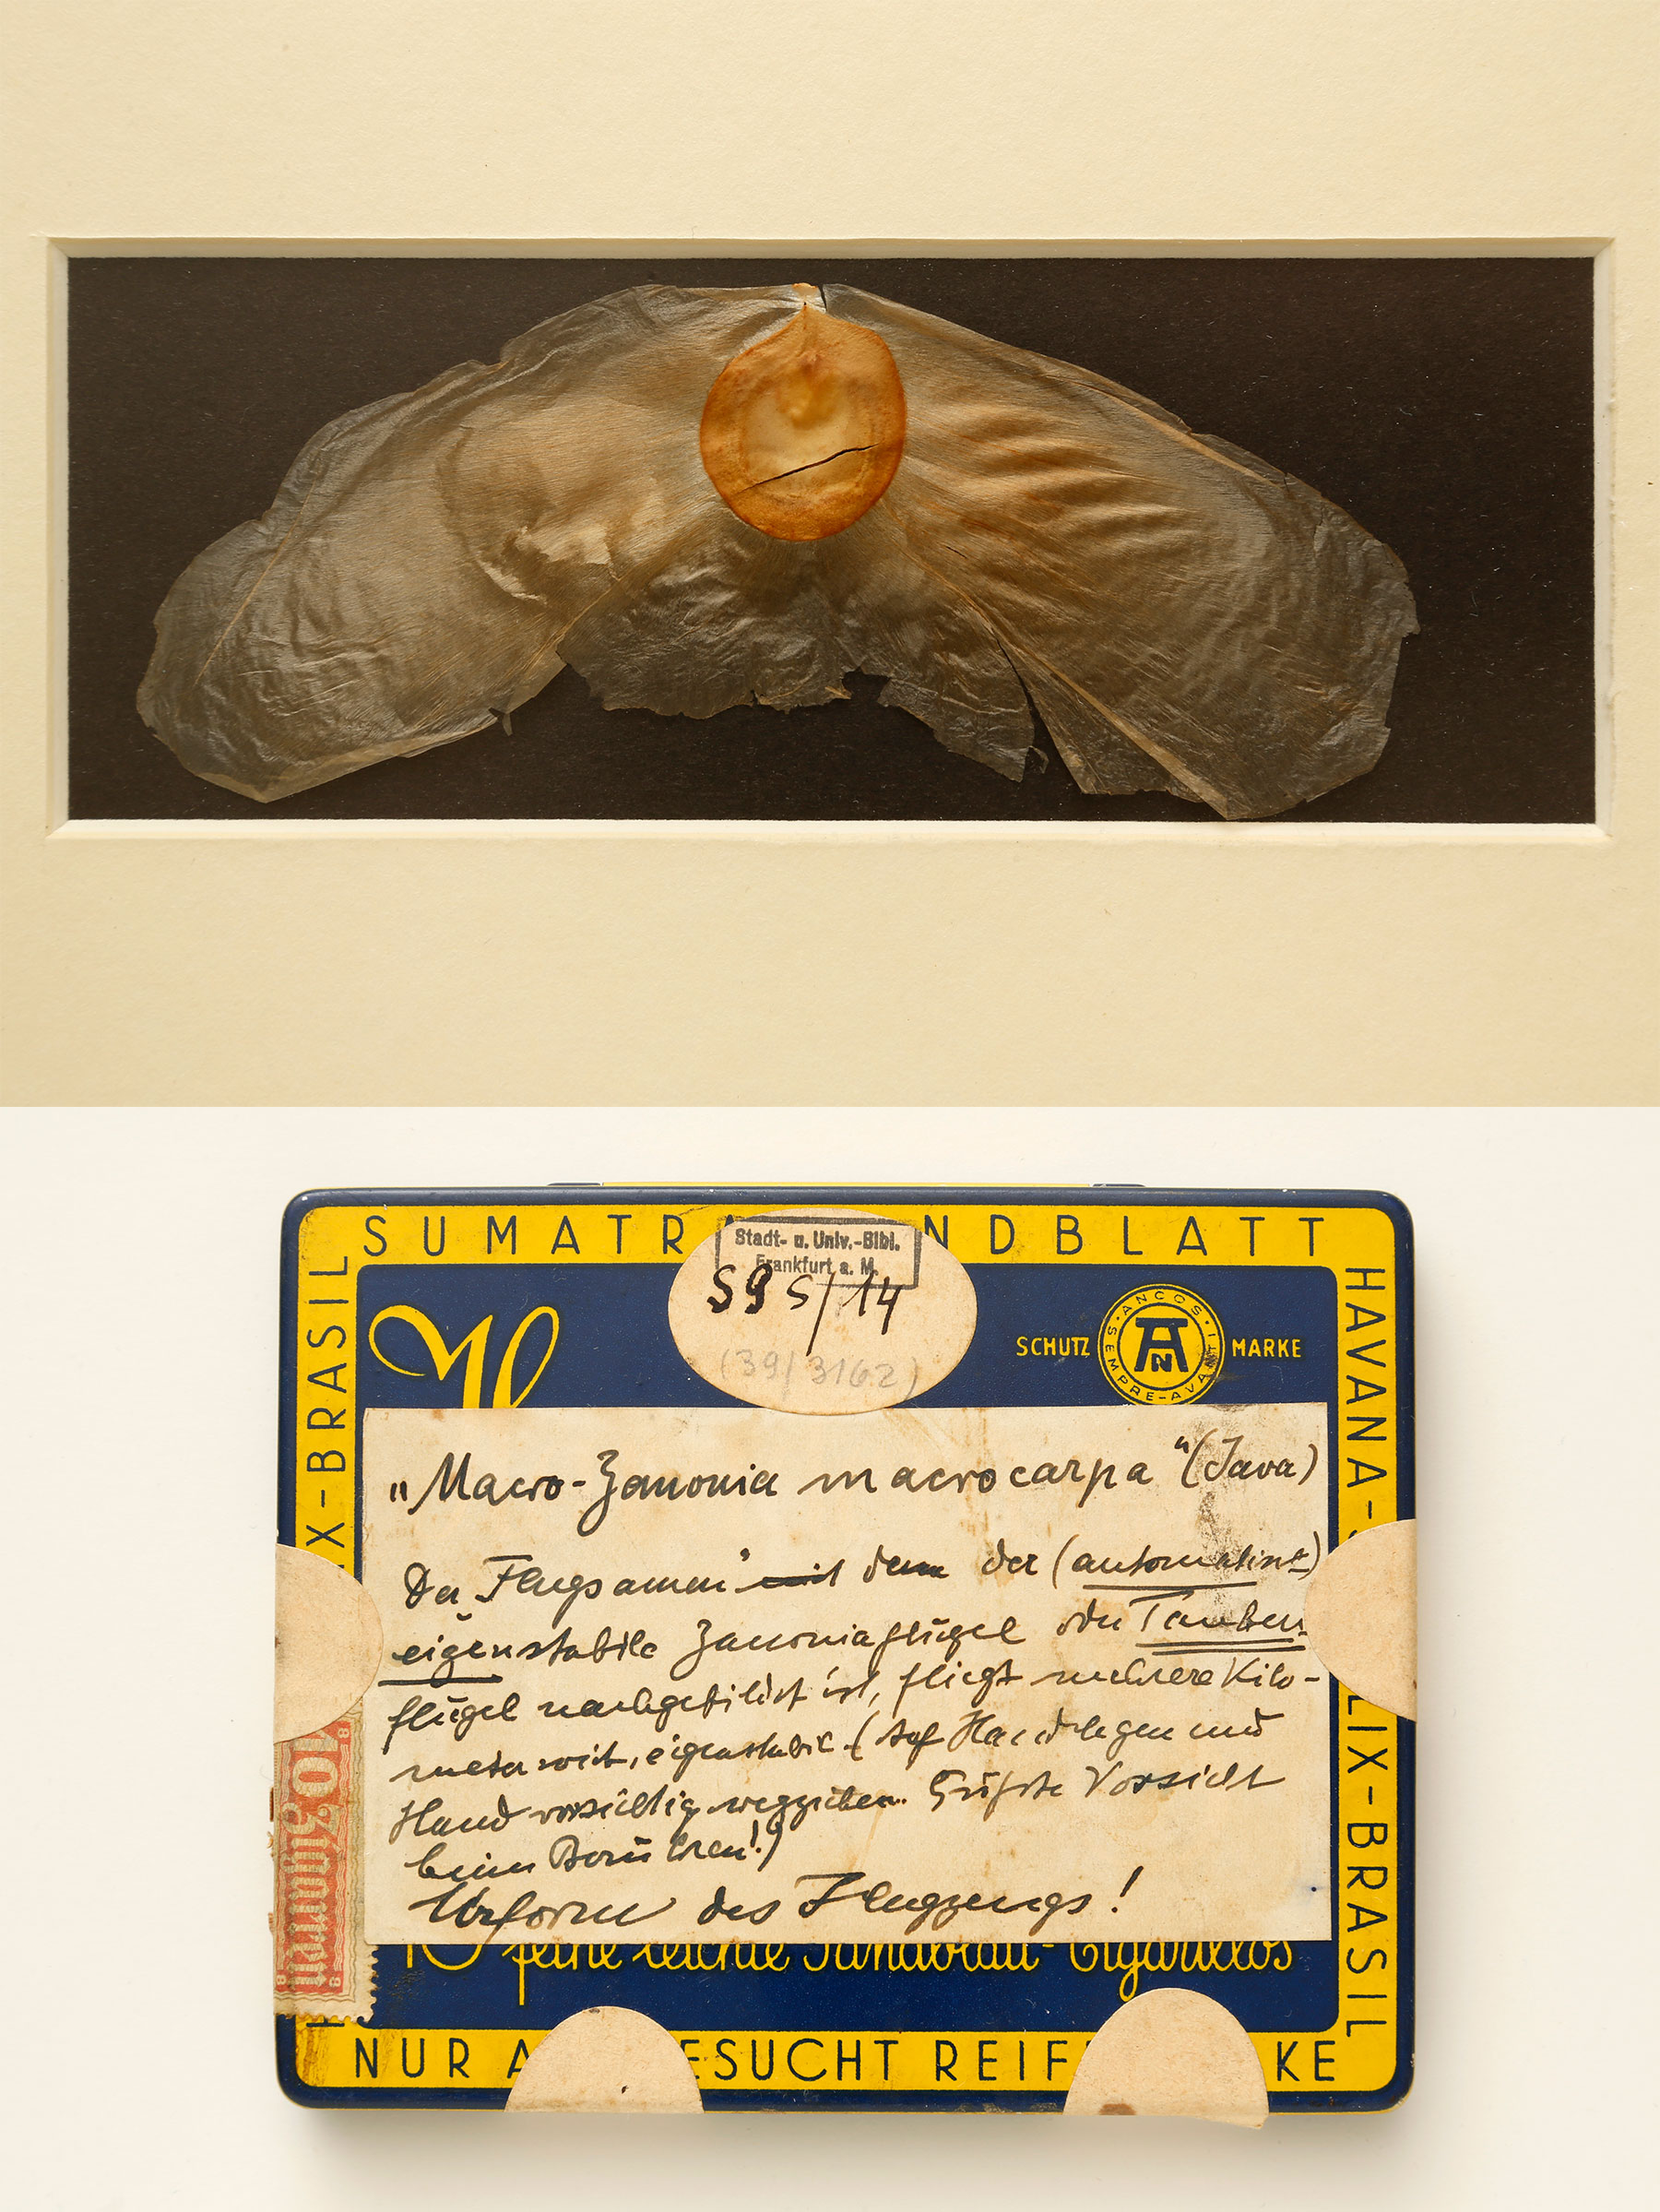 SUMATRA NDBLATT
Stadt- u. Univ.-Bibl.
Frankfurt a. M.
S9 S/14
(39/3162)
SCHUTZ MARKE
ANCOS
SEMPRE-AVANTI
HAVANA-
LIX-BRASIL
IX-BRASIL
„Macro-Zanonia macrocarpa“ (Java)
Der „Flugsamen“ mit dem der (automatisch)
eigenstabile Zanoniaflügel oder Tauben-
flügel nachgebildet ist, fliegt mehrere Kilo-
meter weit, eigenstabil. (Auf Hand legen und
Hand vorsichtig wegziehen. Größte Vorsicht
beim Berühren!)
Urform des Flugzeugs!
10 feine leichte Sandblatt-Cigarillos
10 Zigarren
NUR A ESUCHT REIF KE